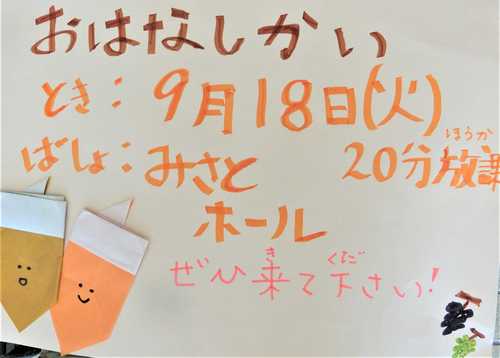 おはなしかい
とき：9月18日(火)
ほうか
20分放課
ばしょ：みさと
ホール
き くだ
ぜひ来て下さい！